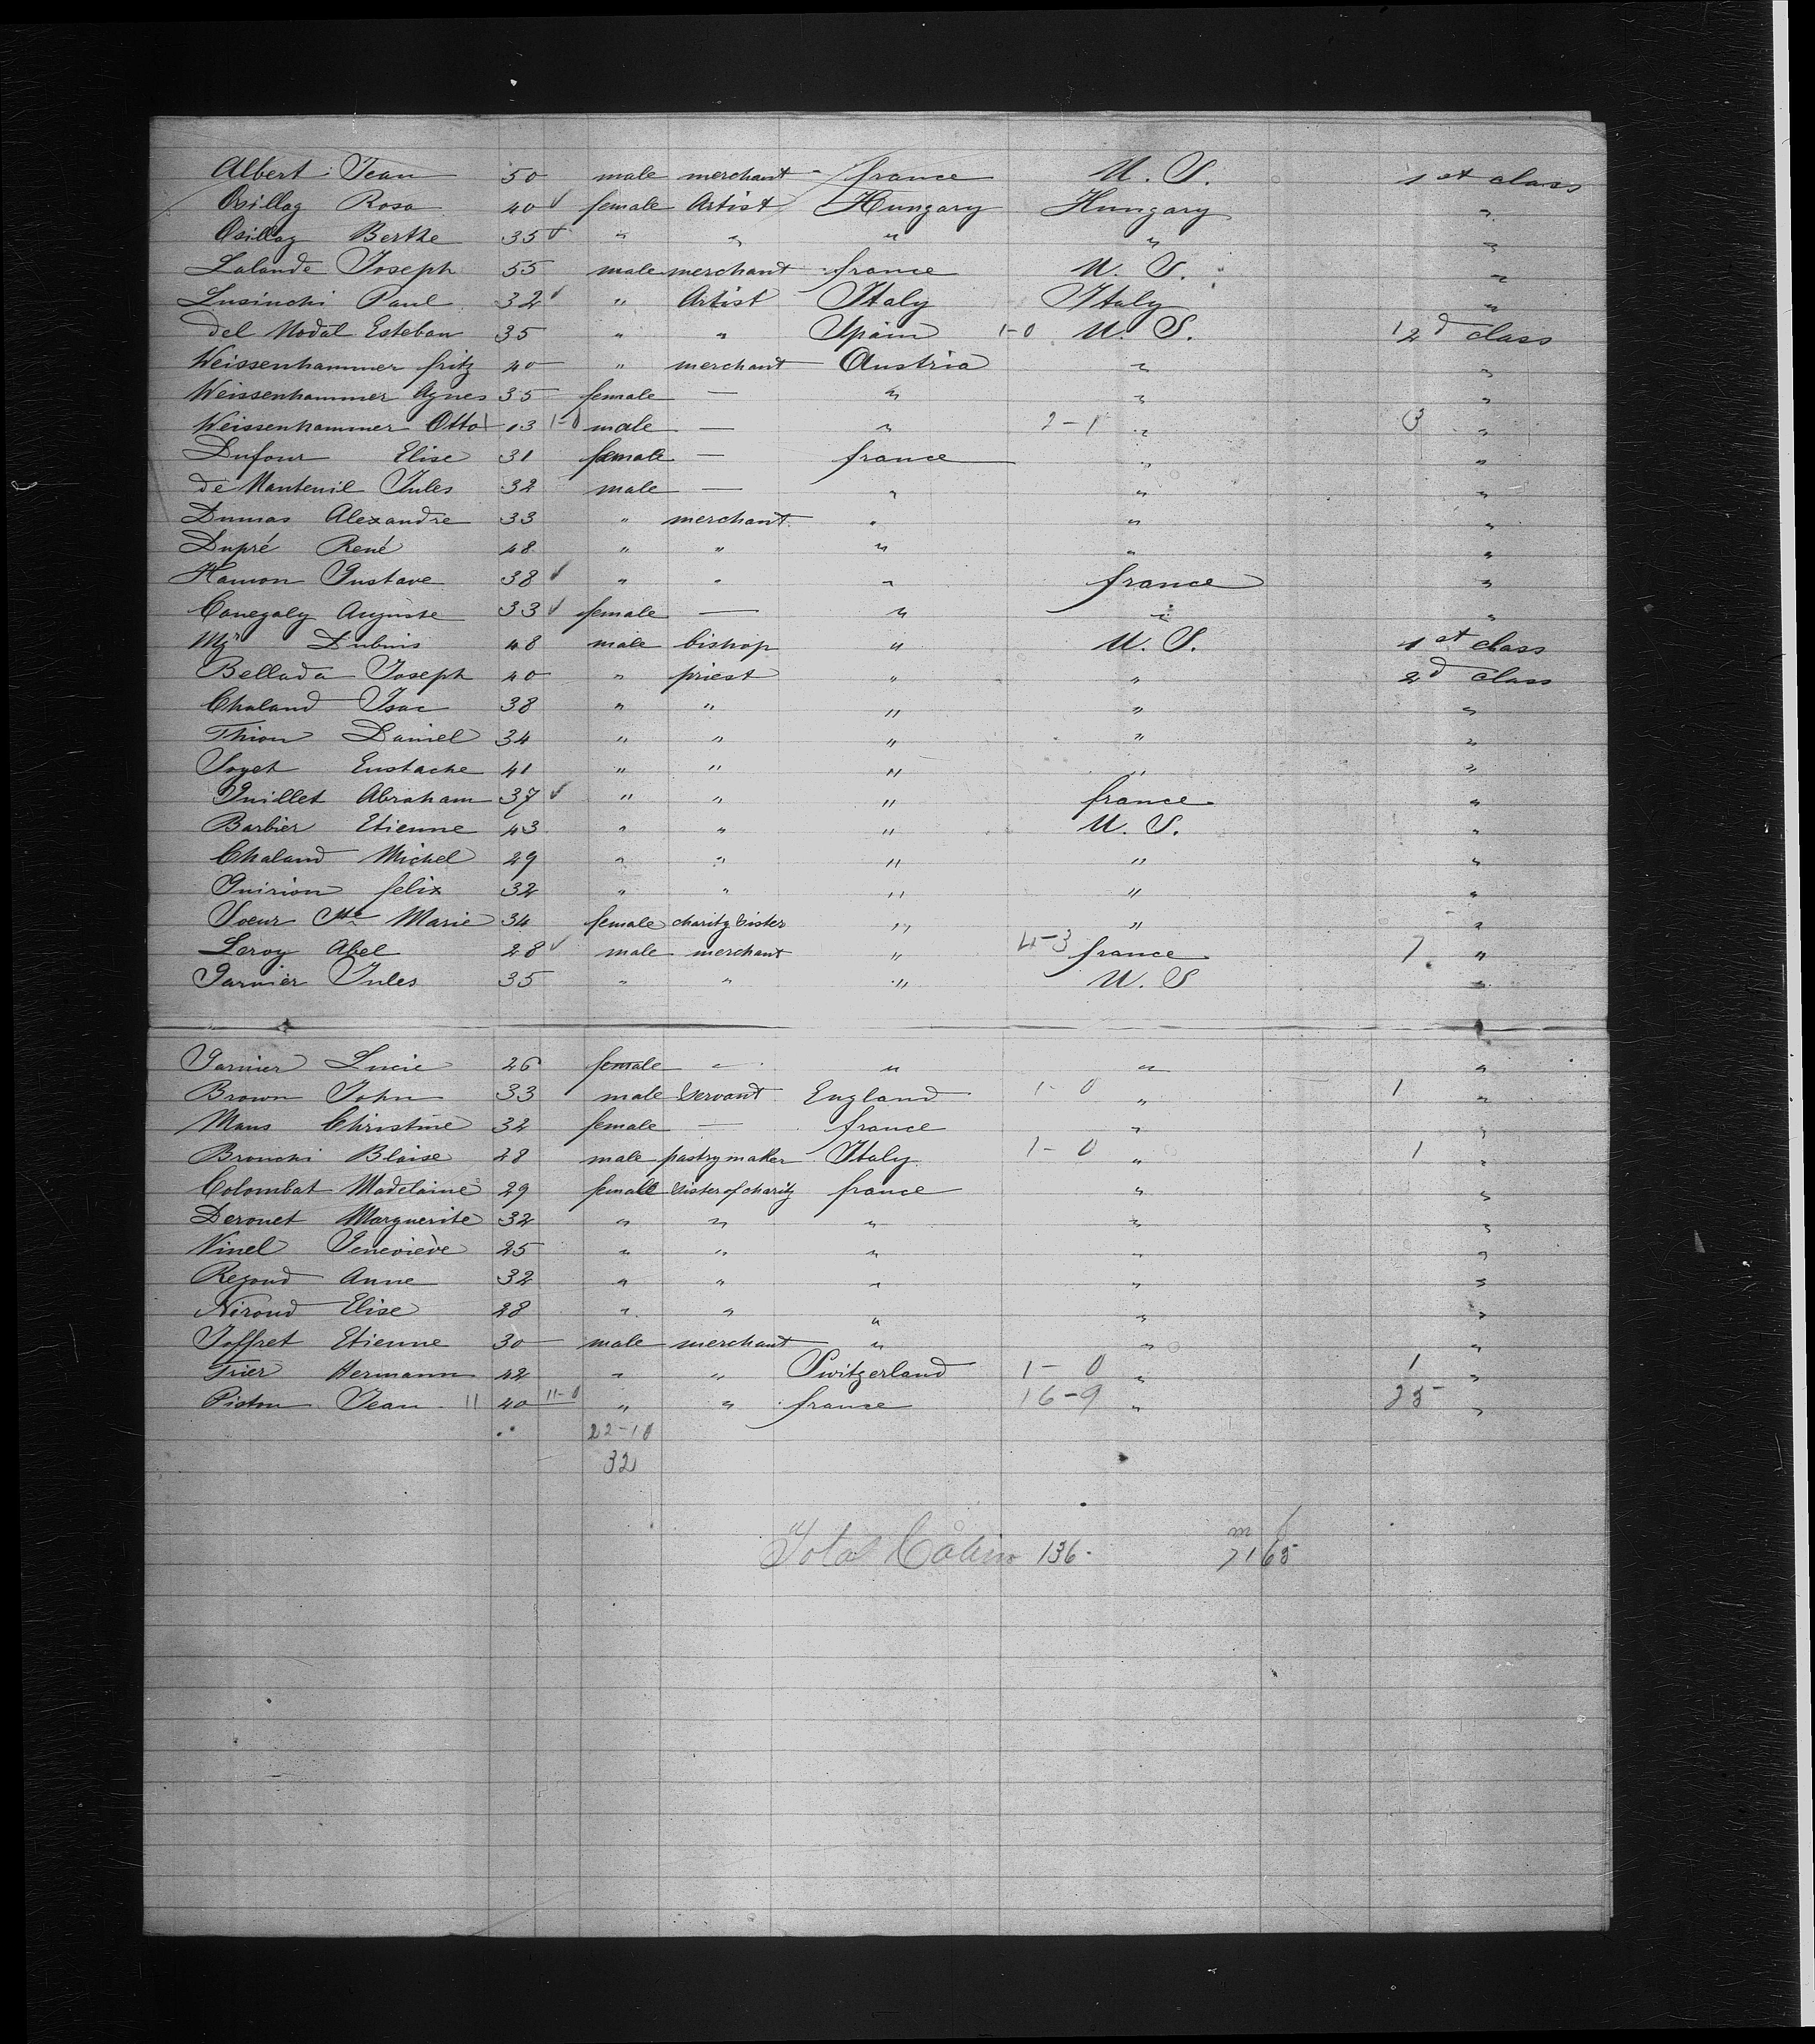 Albert Jean 50 male merchant france U. S. 1st class
Csillag Rosa 40 ✓ female Artist Hungary Hungary "
Csillag Berthe 35 ✓ " " " " "
Lalande Joseph 55 male merchant france U. S. "
Lusinchi Paul 32 ✓ " Artist Italy Italy "
del Nodal Esteban 35 " " Spain 1-0 U. S. 1 2d class
Weissenhammer fritz 40 " merchant Austria " "
Weissenhammer Agnes 35 female — " " "
Weissenhammer Otto 1 13 1-0 male — " 2-1 " 3 "
Dufour Elise 31 female — france " "
de Nanteuil Jules 32 male — " " "
Dumas Alexandre 33 " merchant " " "
Dupré René 48 " " " " "
Hamon Gustave 38 ✓ " " " france "
Canegaly Auguste 33 ✓ female — " " "
Mgr Dubuis 48 male bishop " U. S. 1st class
Bellada Joseph 40 " priest " " 2d class
Chaland Isac 38 " " " " "
Thion Daniel 34 " " " " "
Soyet Eustache 41 " " " " "
Guillet Abraham 37 ✓ " " " france "
Barbier Etienne 43 " " " U. S. "
Chaland Michel 29 " " " " "
Guirion felix 32 " " " " "
Soeur Ste Marie 34 female charity Sister " " "
Leroy Abel 28 ✓ male merchant " 4-3 france 7 "
Garnier Jules 35 " " " U. S "
Garnier Lucie 26 female — " " "
Brown John 33 male Servant England 1-0 " 1 "
Mans Christine 32 female — france " "
Bronchi Blaise 28 male pastry maker Italy 1-0 " 1 "
Colombat Madelaine 29 female Sister of charity france " "
Derouet Marguerite 32 " " " " "
Vinel Geneviève 25 " " " " "
Regoud Anne 32 " " " " "
Niroud Elise 28 " " " " "
Joffret Etienne 30 male merchant " " "
Trier Hermann 42 " " Switzerland 1-0 " 1 "
Piston Jean 11 40 11-0 " " france 16-9 " 25 "
22-10
32
m f
Total Cabin 136 71 65